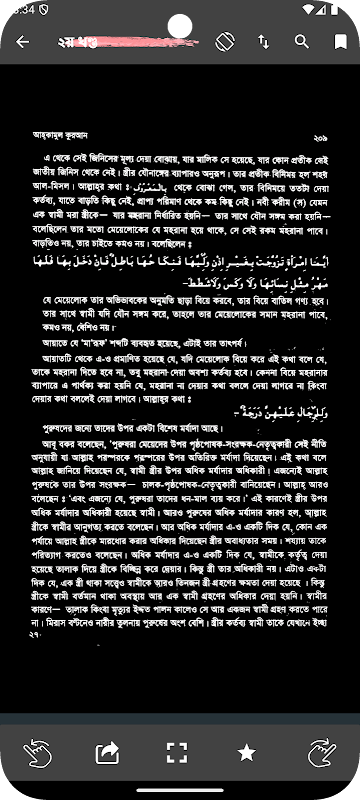 ৪:34
২য় খণ্ড
আহকামুল কুরআন ২০৯
এ থেকে সেই জিনিসের মূল্য দেয়া বোঝায়, যার মালিক সে হয়েছে, যার কোন প্রতীক সেই
জাতীয় জিনিস থেকে নেই। স্ত্রীর যৌনাঙ্গের ব্যাপারও অনুরূপ। তার প্রতীক বিনিময় হল শহর
আল-মিসল। আল্লাহর কথা ঃ بِالْمَعْرُوْفِ থেকে বোঝা গেল, তার বিনিময়ে ততটা দেয়া
কর্তব্য, যাতে বাড়তি কিছু নেই, প্রাপ্য পরিমাণ থেকে কম কিছু নেই। নবী করীম (স) যেমন
এক স্বামী মরা স্ত্রীকে— যার মহরানা নির্ধারিত হয়নি— তার সাথে যৌন সঙ্গম করা হয়নি—
বলেছিলেন তার মতো মেয়েলোকের যে মহরানা হয়ে থাকে, সে সেই রকম মহরানা পাবে।
বাড়তিও নয়, তার চাইতে কমও নয়। বলেছিলেন ঃ
اَيُّمَا امْرَأَةٍ تَزَوَّجَتْ بِغَيْرِ اِذْنِ وَلِيِّهَا فَنِكَا حُهَا بَاطِلٌ فَاِنْ دَخَلَ بِهَا فَلَهَا
مَهْرُ مِثْلِ نِسَائِهَا وَلَا وَكْسَ وَلَا شَطَطَ-
যে মেয়েলোক তার অভিভাবকের অনুমতি ছাড়া বিয়ে করবে, তার বিয়ে বাতিল গণ্য হবে।
তার সাথে স্বামী যদি যৌন সঙ্গম করে, তাহলে তার মেয়েলোকের সমান মহরানা পাবে,
কমও নয়, বেশিও নয়।
আয়াতে যে 'মা'রূফ' শব্দটি ব্যবহৃত হয়েছে, এটাই তার তাৎপর্য।
আয়াতটি থেকে এ-ও প্রমাণিত হয়েছে যে, যদি মেয়েলোক বিয়ে করে এই কথা বলে যে,
তাকে মহরানা দিতে হবে না, তবু মহরানা দেয়া অবশ্য কর্তব্য হবে। কেননা বিয়ে মহরানার
ব্যাপারে এ পার্থক্য করা হয়নি যে, মহরানা না দেয়ার কথা বললে দেয়া লাগবে না কিংবা
দেয়ার কথা বললেই দেয়া লাগবে। আল্লাহর কথা ঃ
وَلِلرِّجَالِ عَلَيْهِنَّ دَرَجَةٌ-
পুরুষদের জন্যে তাদের উপর একটা বিশেষ মর্যাদা আছে।
আবূ বকর বলেছেন, 'পুরুষরা মেয়েদের উপর পৃষ্ঠপোষক-সংরক্ষক-নেতৃত্বকারী সেই নীতি
অনুযায়ী যা আল্লাহ পরস্পরকে পরস্পরের উপর অতিরিক্ত মর্যাদা দিয়েছেন। এই কথা বলে
আল্লাহ জানিয়ে দিয়েছেন যে, স্বামী স্ত্রীর উপর অধিক মর্যাদার অধিকারী। এজন্যেই আল্লাহ
পুরুষকে তার উপর সংরক্ষক— চালক-পৃষ্ঠপোষক-নেতৃত্বকারী বানিয়েছেন। আল্লাহ আরও
বলেছেন ঃ 'এবং এজন্যে যে, পুরুষরা তাদের ধন-মাল ব্যয় করে।' এই কারণেই স্ত্রীর উপর
অধিক মর্যাদার অধিকারী হয়েছে স্বামী। আরও পুরুষের অধিক মর্যাদার কারণ হল, আল্লাহ
স্ত্রীকে স্বামীর আনুগত্য করতে বলেছেন। আর অধিক মর্যাদার এ-ও একটি দিক যে, কোন এক
পর্যায়ে আল্লাহ স্ত্রীকে মারধোর করার অধিকার দিয়েছেন স্ত্রীর অবাধ্যতার সময়। শয্যায় তাকে
পরিত্যাগ করতেও বলেছেন। অধিক মর্যাদার এ-ও একটি দিক যে, স্বামীকে কর্তৃত্ব দেয়া
হয়েছে তালাক দিয়ে স্ত্রীকে বিচ্ছিন্ন করে দেয়ার। কিন্তু স্ত্রী তার অধিকারী নয়। এটাও একটা
দিক যে, এক স্ত্রী থাকা সত্ত্বেও স্বামীকে আরও তিনজন স্ত্রী গ্রহণের ক্ষমতা দেয়া হয়েছে। কিন্তু
স্ত্রীকে স্বামী বর্তমান থাকা অবস্থায় আর এক স্বামী গ্রহণের অধিকার দেয়া হয়নি। স্বামীর
কারণে— তালাক কিংবা মৃত্যুর ইদ্দত পালন কালেও সে আর একজন স্বামী গ্রহণ করতে পারে
না। মিরাস বণ্টনেও নারীর তুলনায় পুরুষের অংশ বেশি। স্ত্রীর কর্তব্য স্বামী তাকে যেখানে ইচ্ছা
২৭